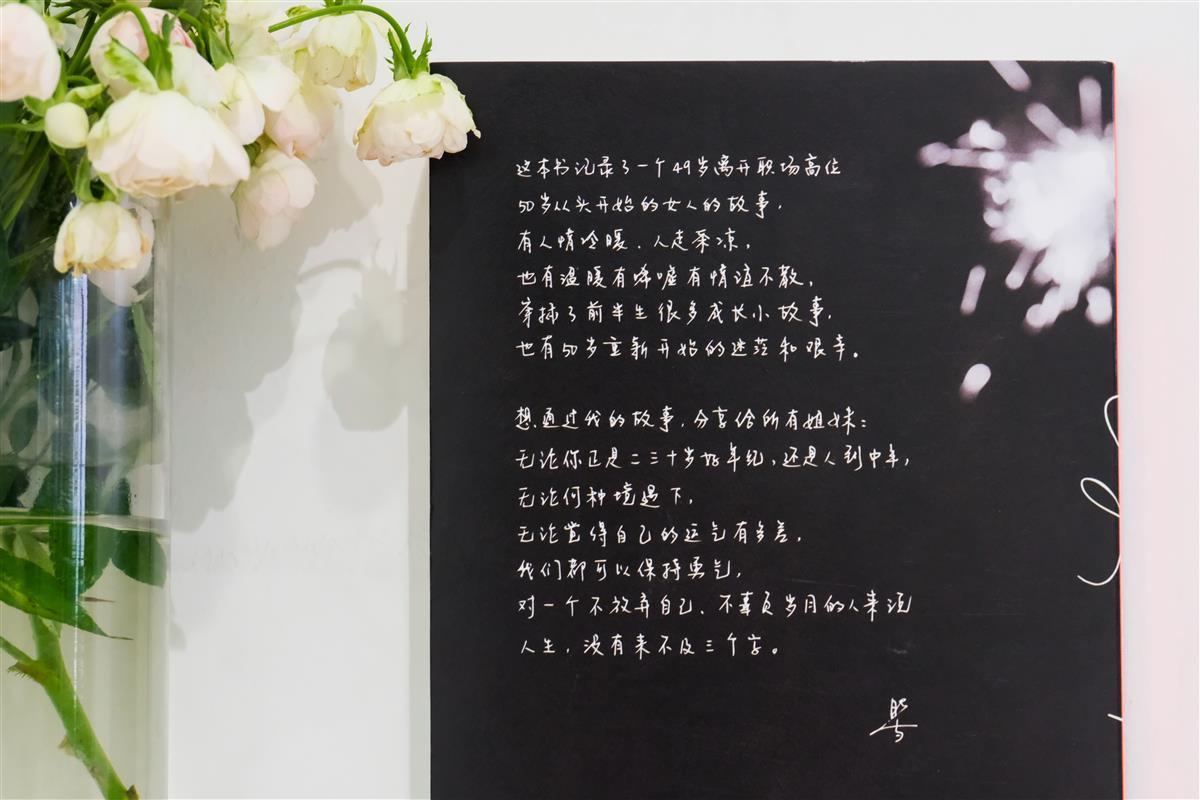 这本书记录了一个49岁离开职场高位
50岁从头开始的女人的故事，
有人情冷暖、人走茶凉，
也有温暖有唏嘘有情谊不散，
穿插了前半生很多成长小故事，
也有50岁重新开始的迷茫和艰辛。
想通过我的故事，分享给所有姐妹：
无论你正是二三十岁好年纪，还是人到中年，
无论何种境遇下，
无论觉得自己的运气有多差，
我们都可以保持勇气，
对一个不放弃自己、不辜负岁月的人来说
人生，没有来不及三个字。